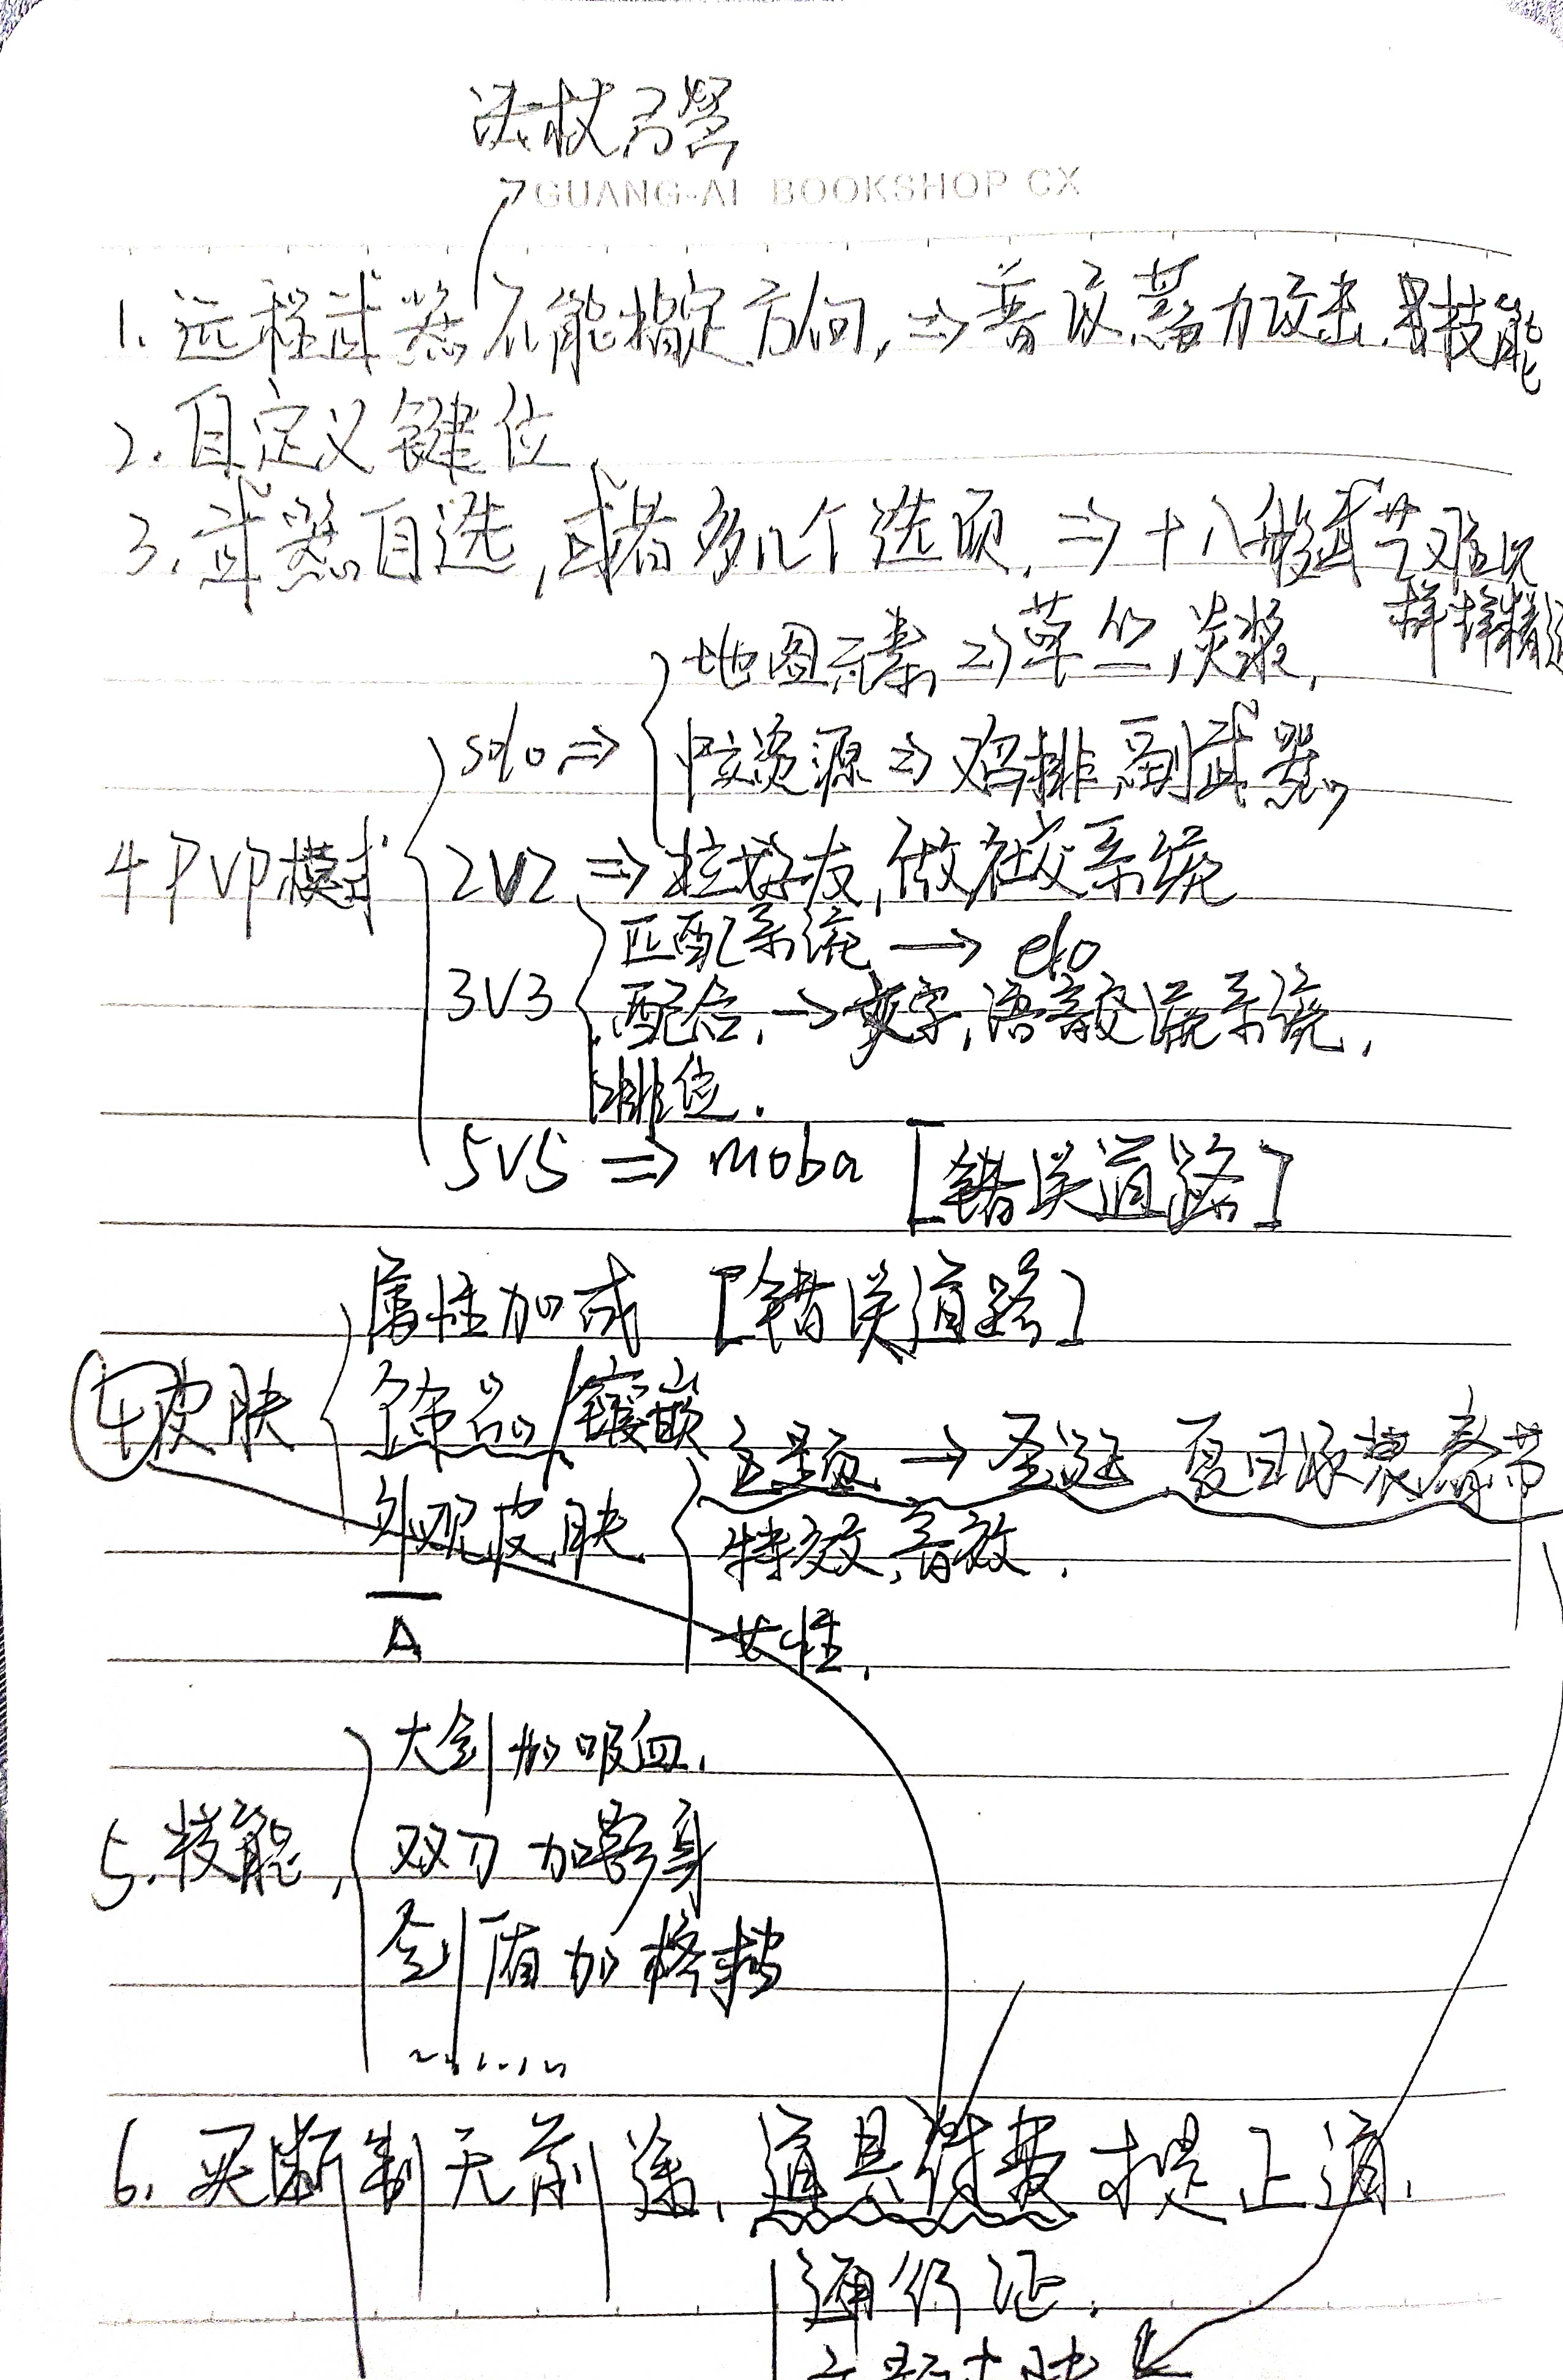 法杖弓弩
GUANG-AI BOOKSHOP CX
1. 远程武器不能指定方向, ⇒ 普攻蓄力攻击, 技能
2. 自定义键位,
3. 武器自选, 或者多几个选项, ⇒ 十八般武艺难以
样样精通
地图元素 ⇒ 草丛, 岩浆,
solo ⇒
中立资源 ⇒ 鸡排, 副武器,
4 PVP模式
2V2 ⇒ 拉好友, 做社交系统
匹配系统 → elo
3V3
配合, → 文字, 语音交流系统,
排位.
5V5 ⇒ moba [错误道路]
属性加成 [错误道路]
4 皮肤
饰品/镶嵌
主题 → 圣诞 夏日泳装 春节
外观皮肤
特效, 音效.
A
女性,
大剑加吸血,
5. 技能,
双刀加影身
剑盾加格挡
.......
6. 买断制无前途, 道具付费才是正道,
通行证,